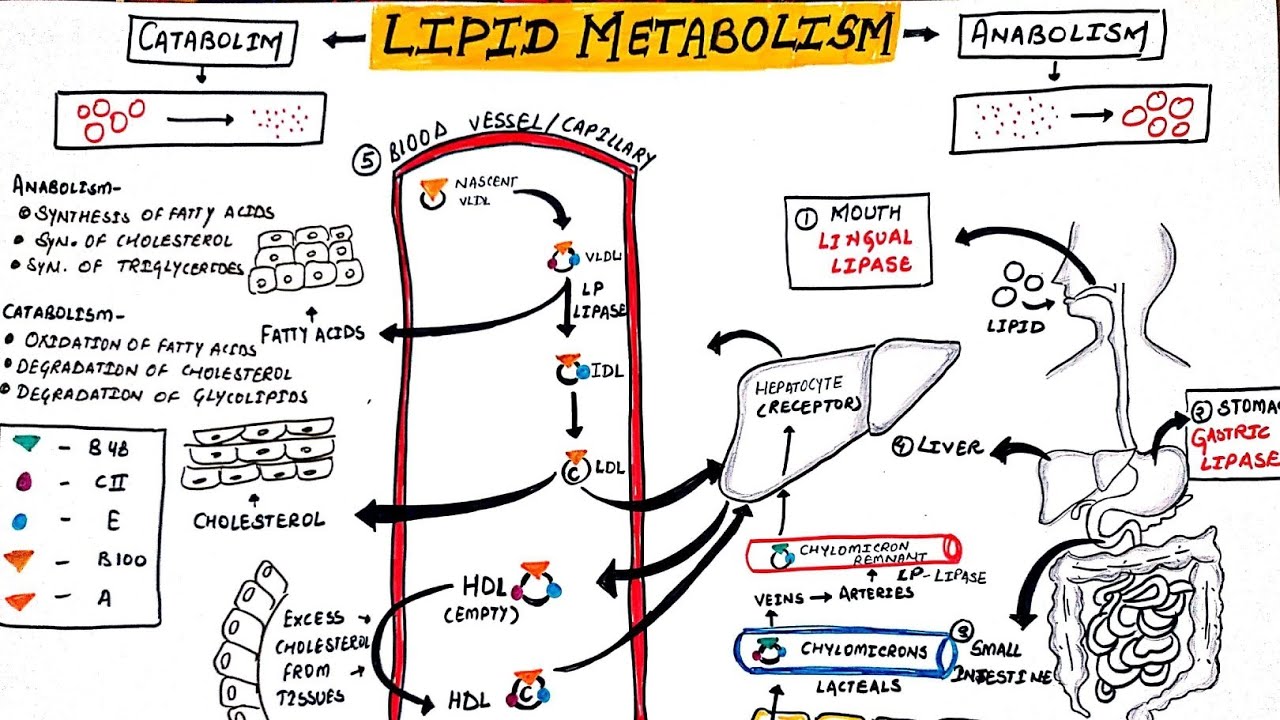 LIPID METABOLISM
CATABOLIM
ANABOLISM
ANABOLISM-
SYNTHESIS OF FATTY ACIDS
SYN. OF CHOLESTEROL
SYN. OF TRIGLYCERIDES
CATABOLISM-
OXIDATION OF FATTY ACIDS
DEGRADATION OF CHOLESTEROL
DEGRADATION OF GLYCOLIPIDS
- B48
- CII
- E
- B100
- A
FATTY ACIDS
CHOLESTEROL
EXCESS
CHOLESTEROL
FROM
TISSUES
5 BLOOD VESSEL/CAPILLARY
NASCENT
VLDL
VLDL
LP
LIPASE
IDL
C LDL
HDL
(EMPTY)
HDL C
1 MOUTH
LINGUAL
LIPASE
LIPID
2 STOMA
GASTRIC
LIPASE
HEPATOCYTE
(RECEPTOR)
4 LIVER
CHYLOMICRON
REMNANT
LP-LIPASE
VEINS → ARTERIES
CHYLOMICRONS
LACTEALS
3 SMALL
INTESTINE